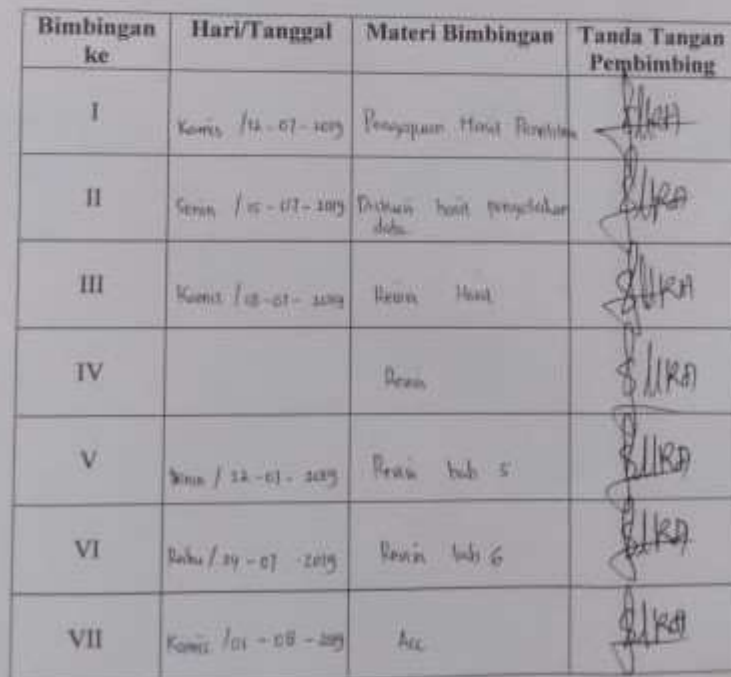 Bimbingan ke
Hari/Tanggal
Materi Bimbingan
Tanda Tangan Pembimbing
I
Kamis /
-07-2019
Pengajuan Hasil Penelitian
II
Senin / 15-07-2019
Diskusi hasil
data
III
Kamis / 18-07-2019
Revisi Hasil
IV
Revisi
V
Senin / 22-07-2019
Revisi bab 5
VI
Rabu / 24-07-2019
Revisi bab 6
VII
Kamis / 01-08-2019
Acc